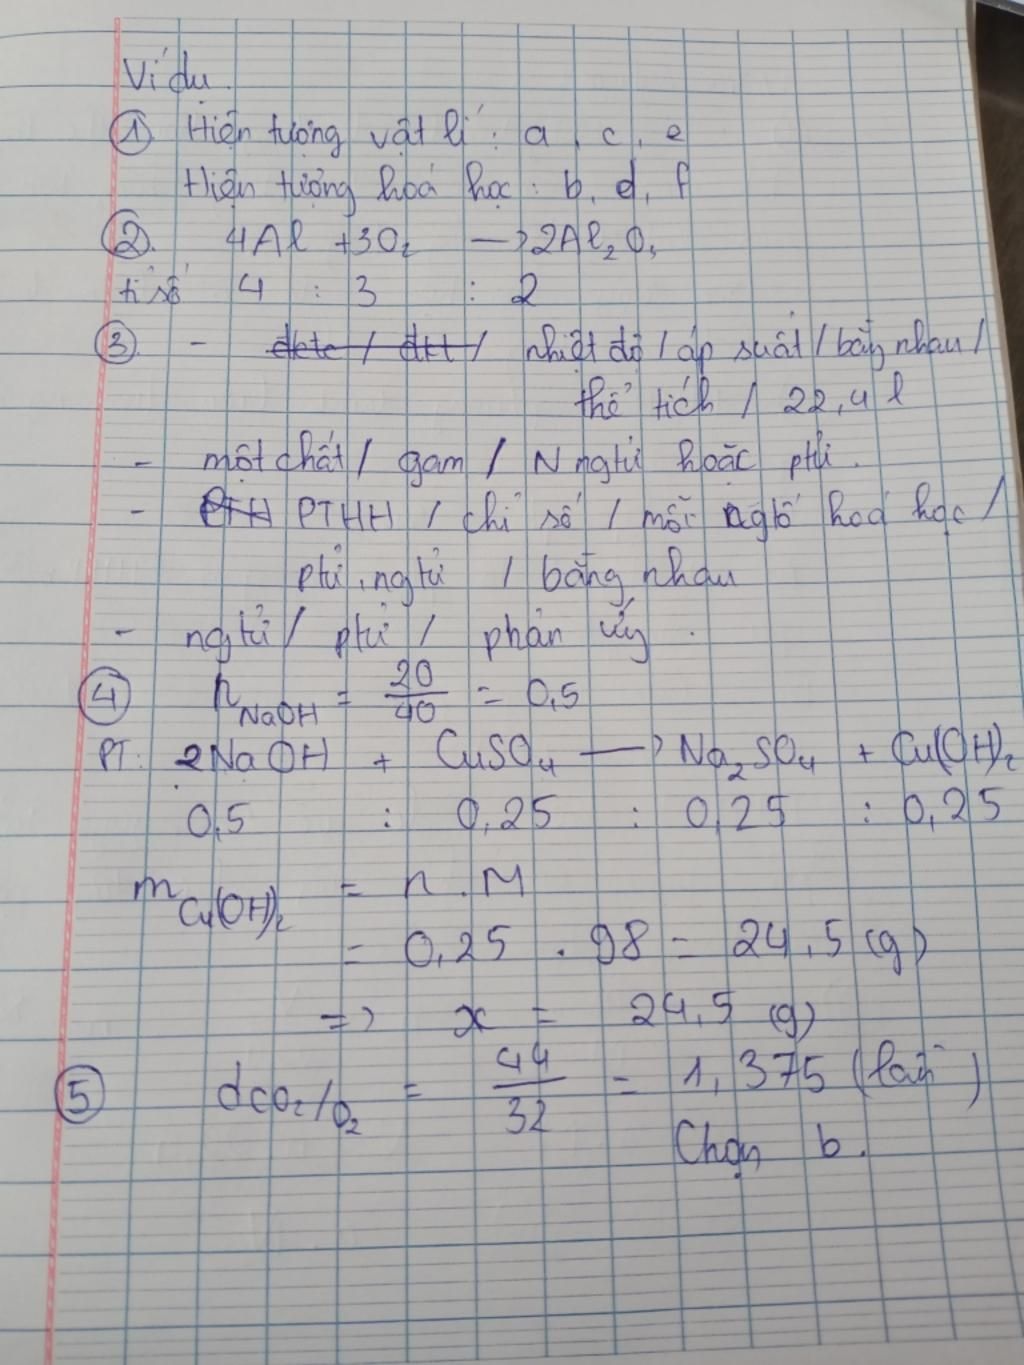 Ví dụ.
① Hiện tượng vật lí : a, c, e
Hiện tượng hoá học : b, d, f
②. 4Al + 3O₂ → 2Al₂O₃
tỉ số 4 : 3 : 2
③. - đktc / đkt / nhiệt độ / áp suất / bằng nhau /
thể tích / 22,4 l
- một chất / gam / N ngtử hoặc ptử.
- PTH PTHH / chỉ số / mỗi ngtố hoá học /
ptử, ngtử / bằng nhau
- ngtử / ptử / phản ứng.
④ n NaOH = 20/40 = 0,5
PT: 2NaOH + CuSO₄ → Na₂SO₄ + Cu(OH)₂
0,5 : 0,25 : 0,25 : 0,25
m Cu(OH)₂ = n . M
= 0,25 . 98 = 24,5 (g)
=> x = 24,5 (g)
⑤ dCO₂/O₂ = 44/32 = 1,375 (lần)
Chọn b.